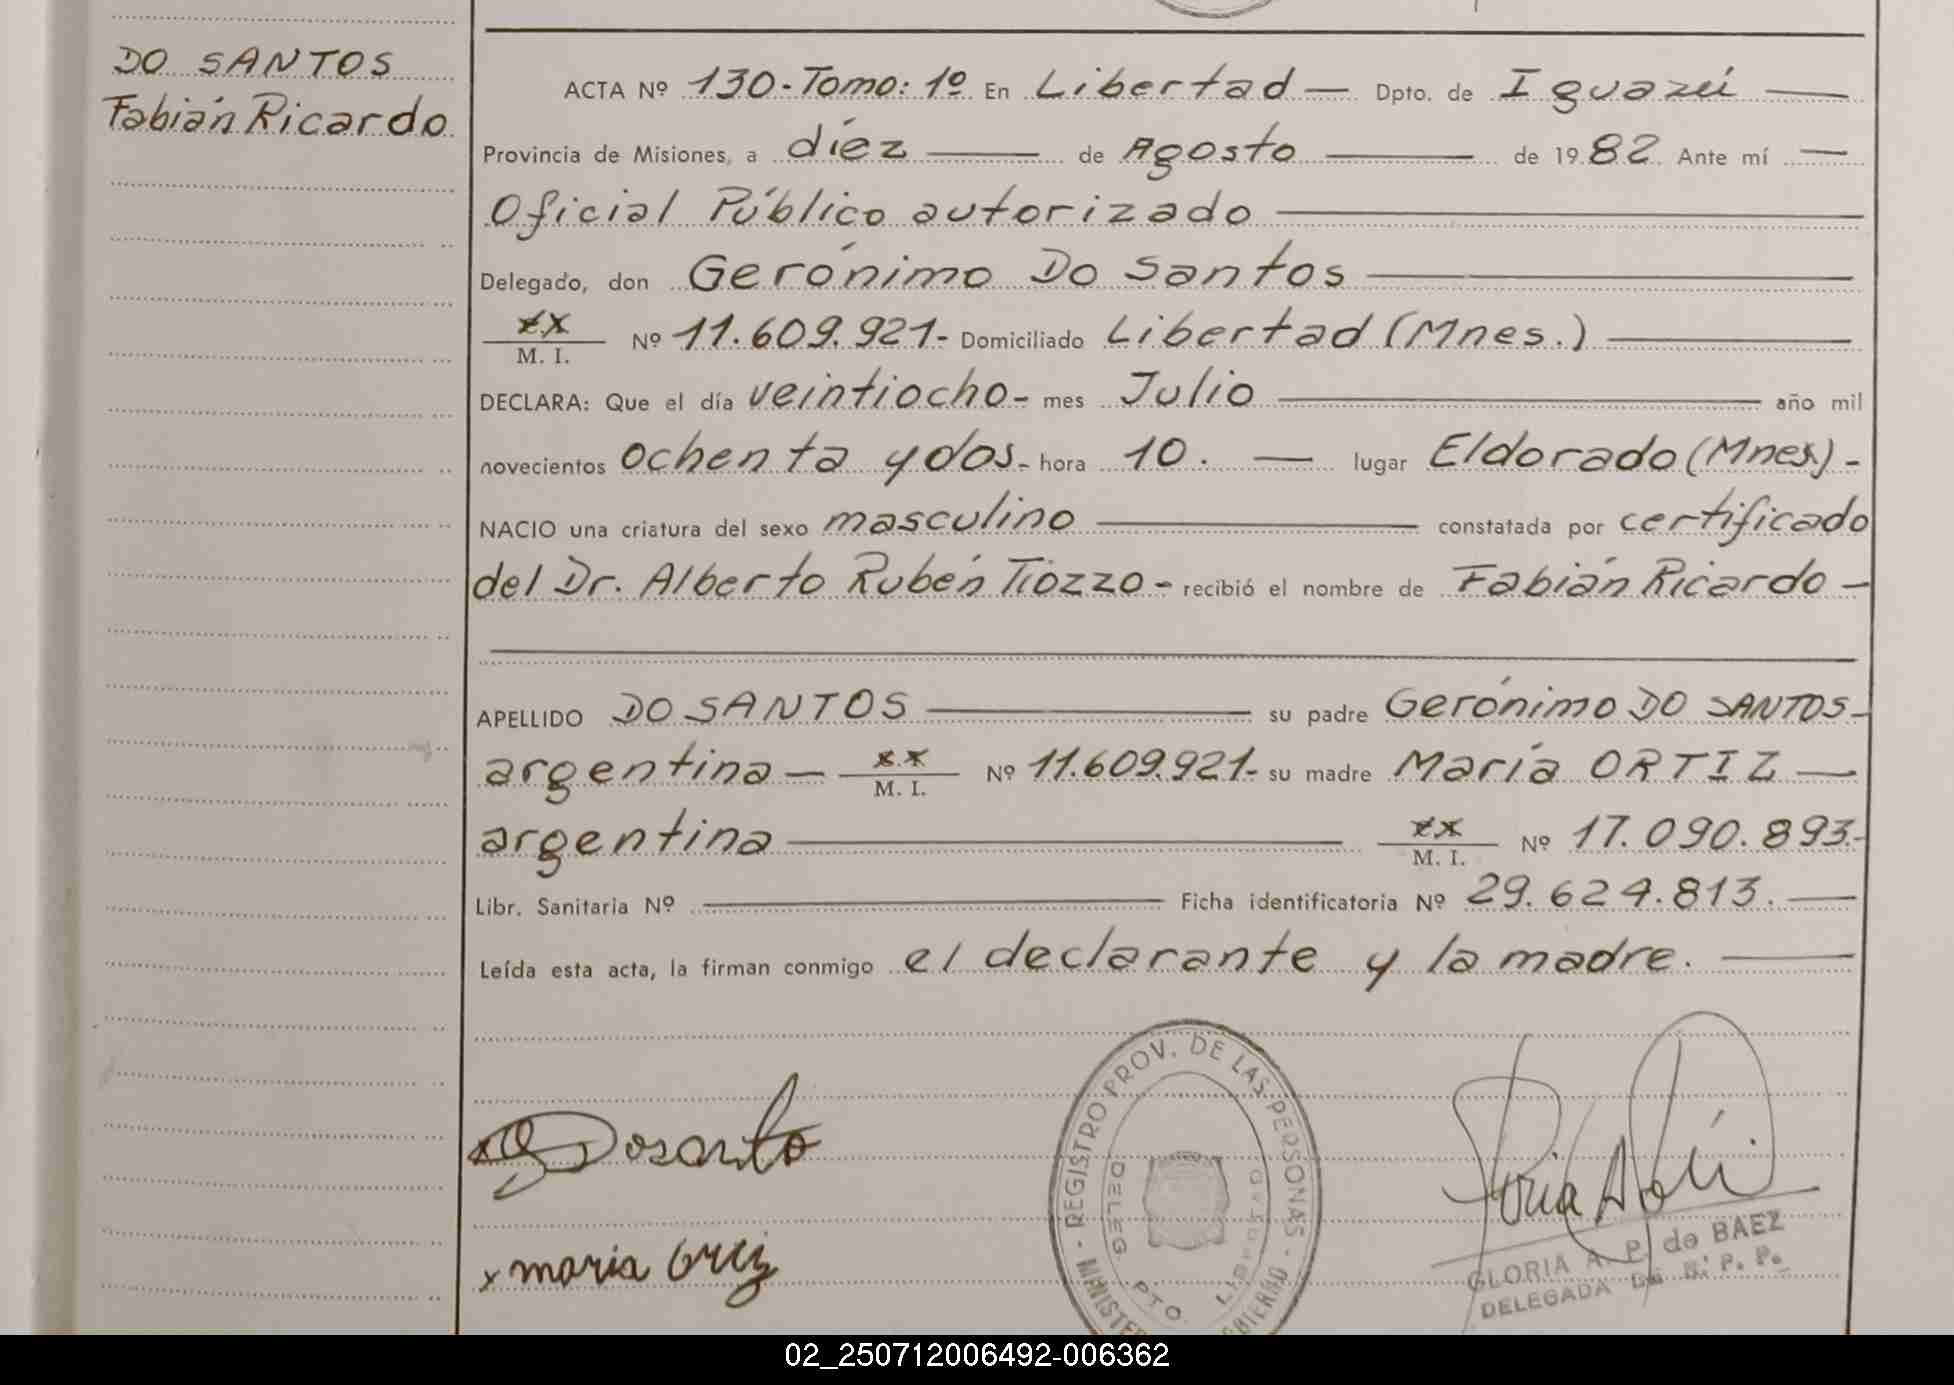 DO SANTOS
Fabián Ricardo
ACTA Nº 130-Tomo: 1º En Libertad — Dpto. de Iguazú —
Provincia de Misiones, a diez — de Agosto — de 1982 Ante mí —
Oficial Público autorizado —
Delegado, don Gerónimo Do Santos —
xx M. I. Nº 11.609.921- Domiciliado Libertad (Mnes.) —
DECLARA: Que el día veintiocho- mes Julio — año mil
novecientos ochenta y dos- hora 10. — lugar Eldorado (Mnes)-
NACIO una criatura del sexo masculino — constatada por certificado
del Dr. Alberto Rubén Tiozzo- recibió el nombre de Fabián Ricardo —
APELLIDO DO SANTOS — su padre Gerónimo DO SANTOS-
argentina — xx M. I. Nº 11.609.921- su madre María ORTIZ —
argentina — xx M. I. Nº 17.090.893.-
Libr. Sanitaria Nº — Ficha identificatoria Nº 29.624.813. —
Leída esta acta, la firman conmigo el declarante y la madre. —
x Dosanto
x maria Ortiz
REGISTRO PROV. DE LAS PERSONAS
DELEG. PTO. LIBERTAD
GLORIA A. P. de BAEZ
DELEGADA
02_250712006492-006362